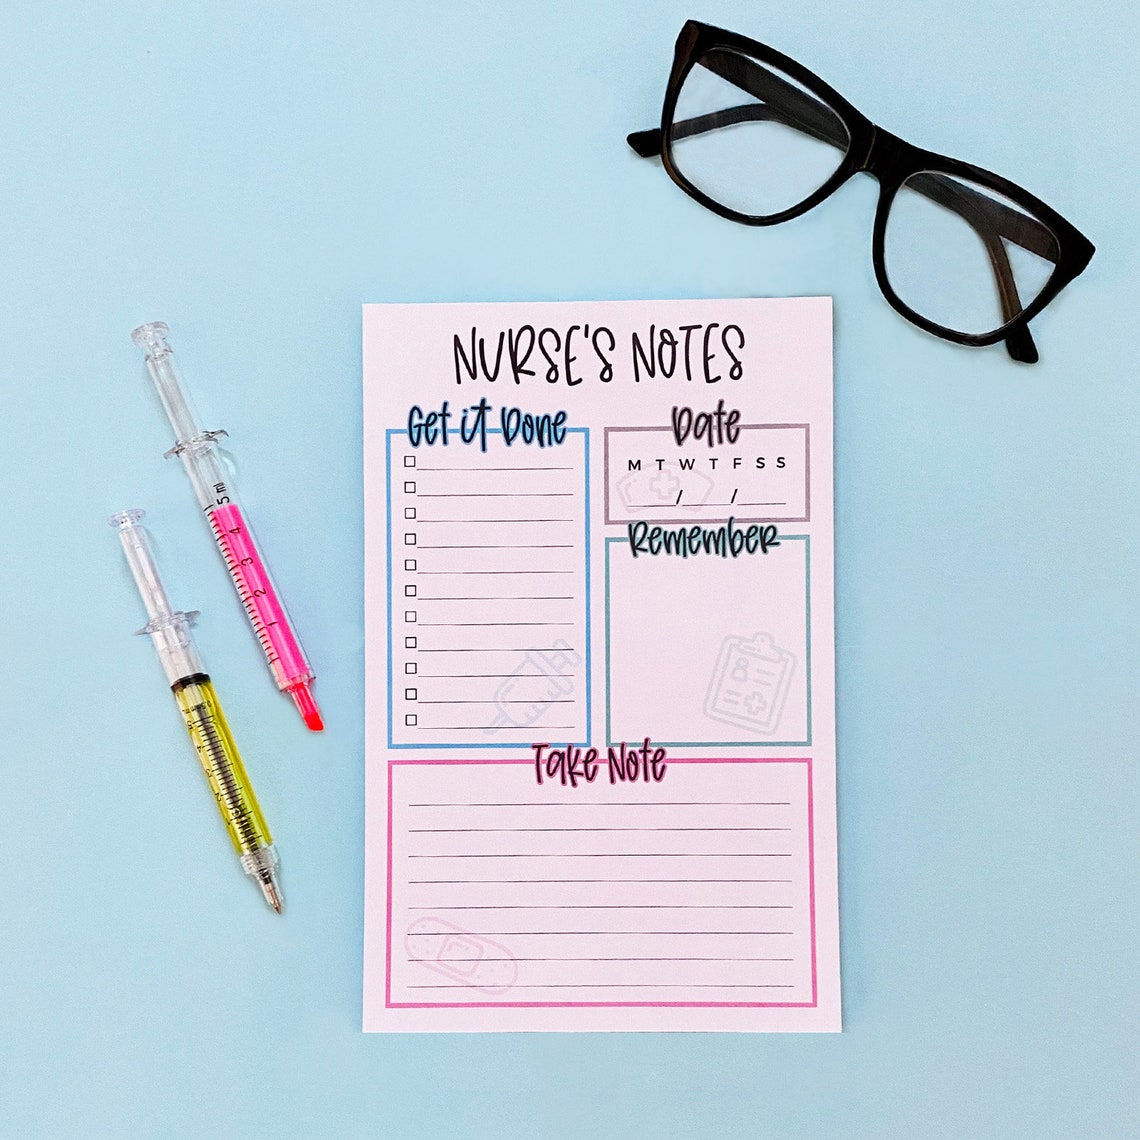 NURSE'S NOTES
Get it Done
Date
M T W T F S S
/ /
Remember
Take Note
5 ml
4
3
2
1